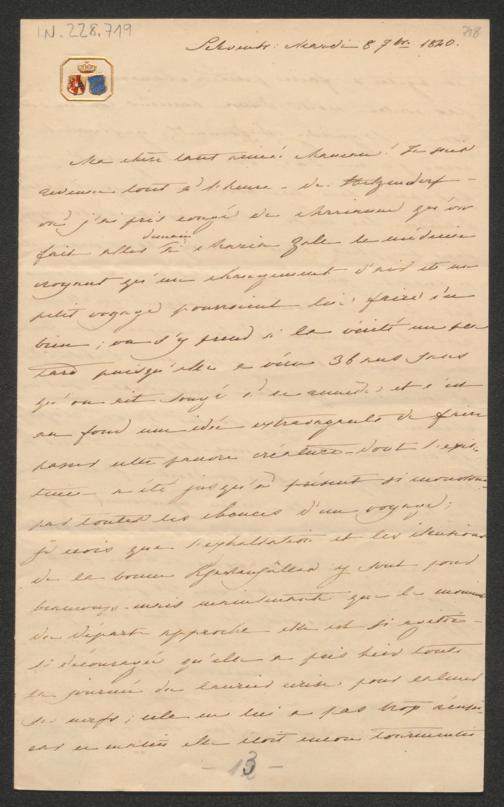 IN. 228.719
718
Schoenbr: Mardi 8 7bre 1840.
Ma chère tant aimée Maman! Je suis
revenue tout à l'heure de Hetzendorf
où j'ai pris congé de Marianne qu'on
fait aller demain à Maria Zell le médecin
croyant qu'un changement d'air et un
petit voyage pourroient lui faire du
bien; on s'y prend à la vérité un peu
tard puisqu'elle a vécu 36 ans sans
qu'on ait songé à ce remède, et c'est
au fond une idée extravagante de faire
passer cette pauvre créature dont l'exis-
tence a été jusqu'à présent si monotone
par toutes les chances d'un voyage;
je crois que l'exaltation et les illusions
de la bonne y sont pour
beaucoup, mais maintenant que le moment
du départ approche elle est si agitée
si découragée qu'elle a pris hier toute
la journée du laurier cerise pour calmer
ses nerfs; cela ne lui a pas trop réussi
car ce matin elle étoit encore tourmentée
- 13 -